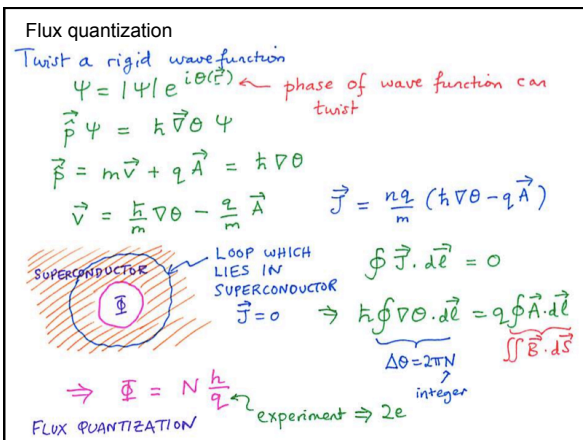 Flux quantization
Twist a rigid wavefunction
Ψ = |Ψ| e^{iθ(r⃗)} ← phase of wave function can
twist
p̂⃗ Ψ = ħ ∇⃗θ Ψ
p⃗ = mv⃗ + qA⃗ = ħ∇θ
v⃗ = ħ/m ∇θ - q/m A⃗
J⃗ = nq/m (ħ∇θ - qA⃗)
SUPERCONDUCTOR
Φ
LOOP WHICH
LIES IN
SUPERCONDUCTOR
J⃗ = 0
∮ J⃗ . dl⃗ = 0
⇒ ħ∮∇θ . dl⃗ = q∮A⃗ . dl⃗
Δθ = 2πN
integer
∬B⃗ . dS⃗
⇒ Φ = N h/q
experiment ⇒ 2e
FLUX QUANTIZATION